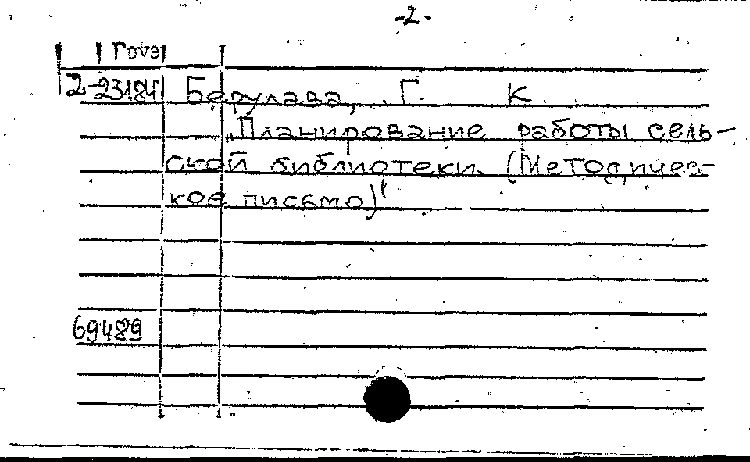 -2-
2-23184 Берулава, Г. К
„Планирование работы сель-
ской библиотеки. (Методичес-
кое письмо)"
69489